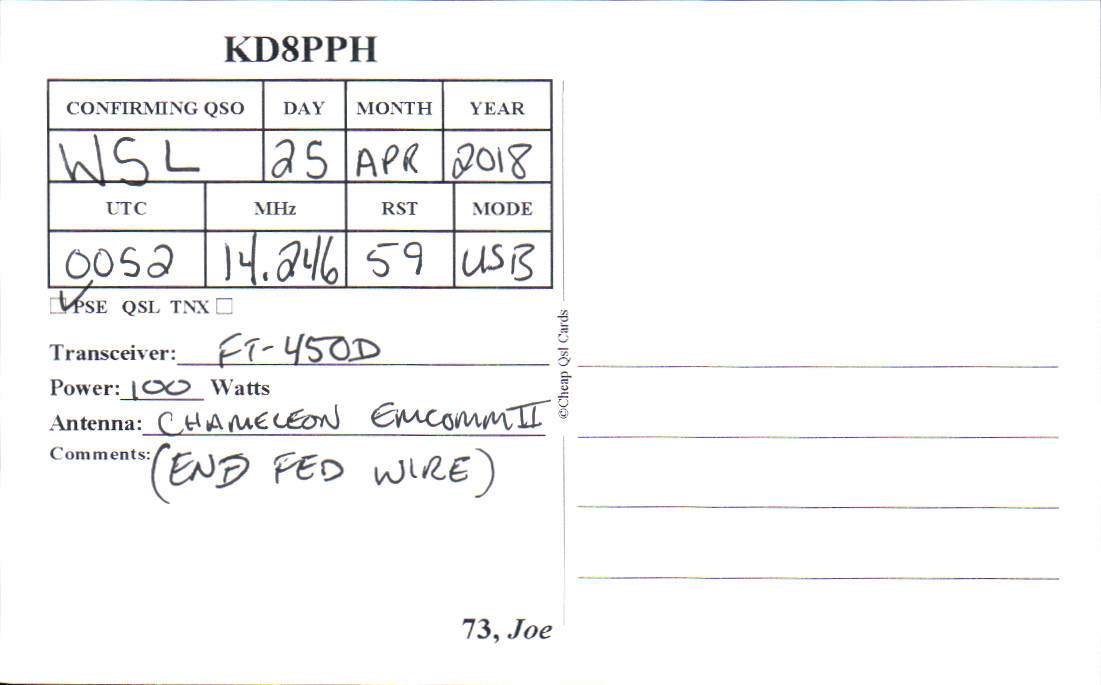 KD8PPH
CONFIRMING QSO DAY MONTH YEAR
W5L 25 APR 2018
UTC MHz RST MODE
0052 14.246 59 USB
PSE QSL TNX
Transceiver: FT-450D
Power: 100 Watts
Antenna: CHAMELEON EMCOMM II
Comments: (END FED WIRE)
73, Joe
©Cheap Qsl Cards